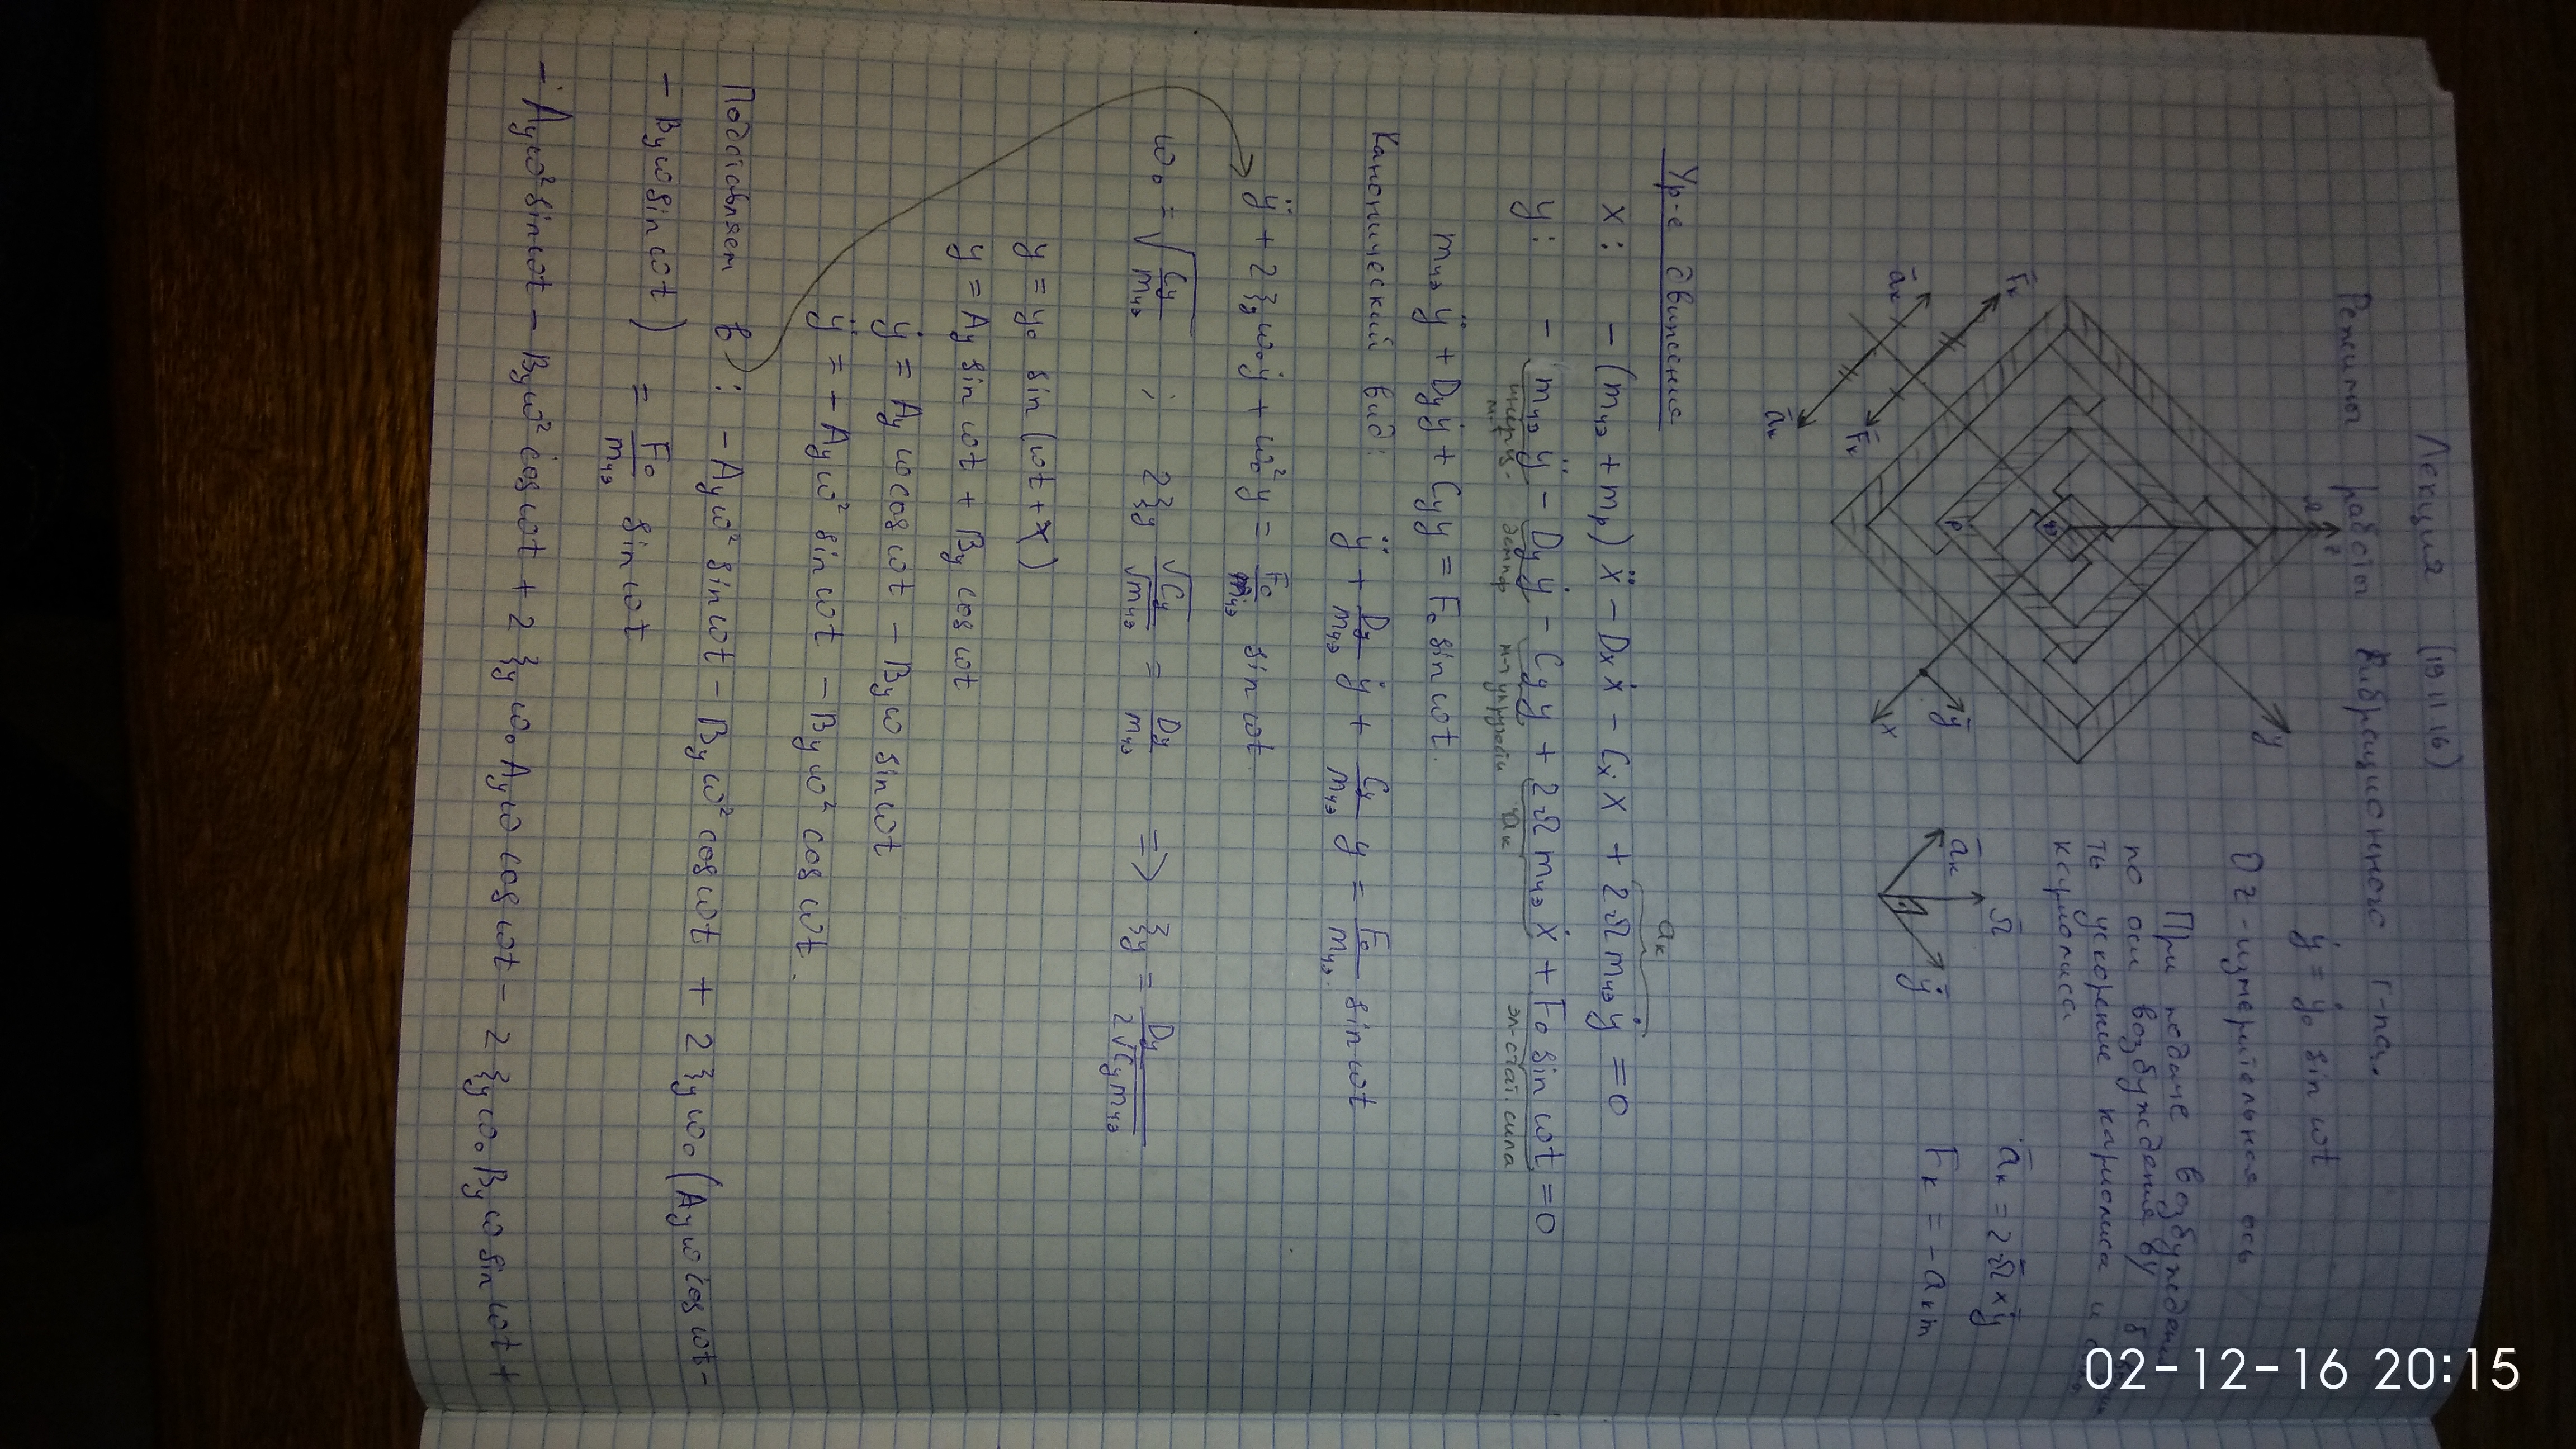 Лекция (19.11.16)
Режимы работ вибрационного г-па.
ẏ = ẏ₀ sin ωt
OZ - измерительная ось
При подаче
по оси возбуждения
ть ускорение кариолиса и
кариолиса
z
y
ẏ
x
F̄к
āк
F̄к
āк
āк
Ω̄
ẏ
āк = 2Ω̄×ẏ
Fк = -aкm
Ур-е движения
aк
x: -(mчэ + mр)ẍ - Dxẋ - Cxx + 2Ωmчэẏ = 0
y: - mчэÿ - Dyẏ - Cyy + 2Ωmчэẋ + F₀ sin ωt = 0
инерц. демпф м-л упругости aк эл-стат сила
mчэÿ + Dyẏ + Cyy = F₀ sin ωt.
Канонический вид: ÿ + Dy/mчэ ẏ + Cy/mчэ y = F₀/mчэ sin ωt
ÿ + 2ξyω₀ẏ + ω₀²y = F₀/mчэ sin ωt.
ω₀ = √(Cy/mчэ) ; 2ξy √Cy/√mчэ = Dy/mчэ => ξy = Dy/2√(Cymчэ)
y = y₀ sin (ωt + X)
y = Ay sin ωt + By cos ωt
ẏ = Ay ω cos ωt - By ω sin ωt
ÿ = - Ayω² sin ωt - By ω² cos ωt.
Подставляем в: - Ayω² sin ωt - By ω² cos ωt + 2ξyω₀ (Ayω cos ωt -
- Byω sin ωt) = F₀/mчэ sin ωt
- Ayω² sin ωt - Byω² cos ωt + 2ξyω₀Ayω cos ωt - 2ξyω₀Byω sin ωt +
02-12-16 20:15